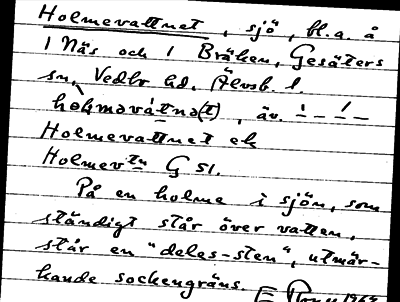 Holmevattnet, sjö, bl.a. å
1 Näs och 1 Bräken, Gesäters
sn, Vedbo hd, Älvsb. l.
hòlməvátnə(t), äv. – ́ – –
Holmevattnet ek
Holmevtn G 51.
På en holme i sjön, som
ständigt står över vatten,
står en "deles-sten", utmär-
kande sockengräns.